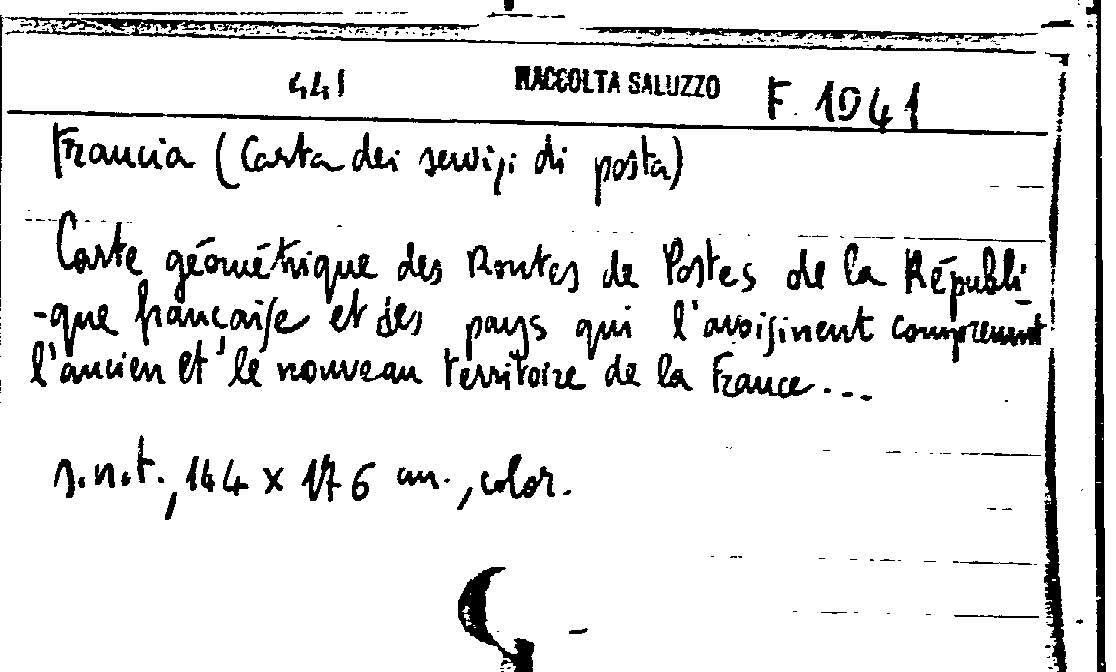 441 RACCOLTA SALUZZO F. 1941
Francia (Carta dei servizi di posta)
Carte géométrique des Routes de Postes de la Républi
-que française et des pays qui l'avoisinent comprenant
l'ancien et le nouveau territoire de la France...
s.n.t., 144 x 176 cm., color.